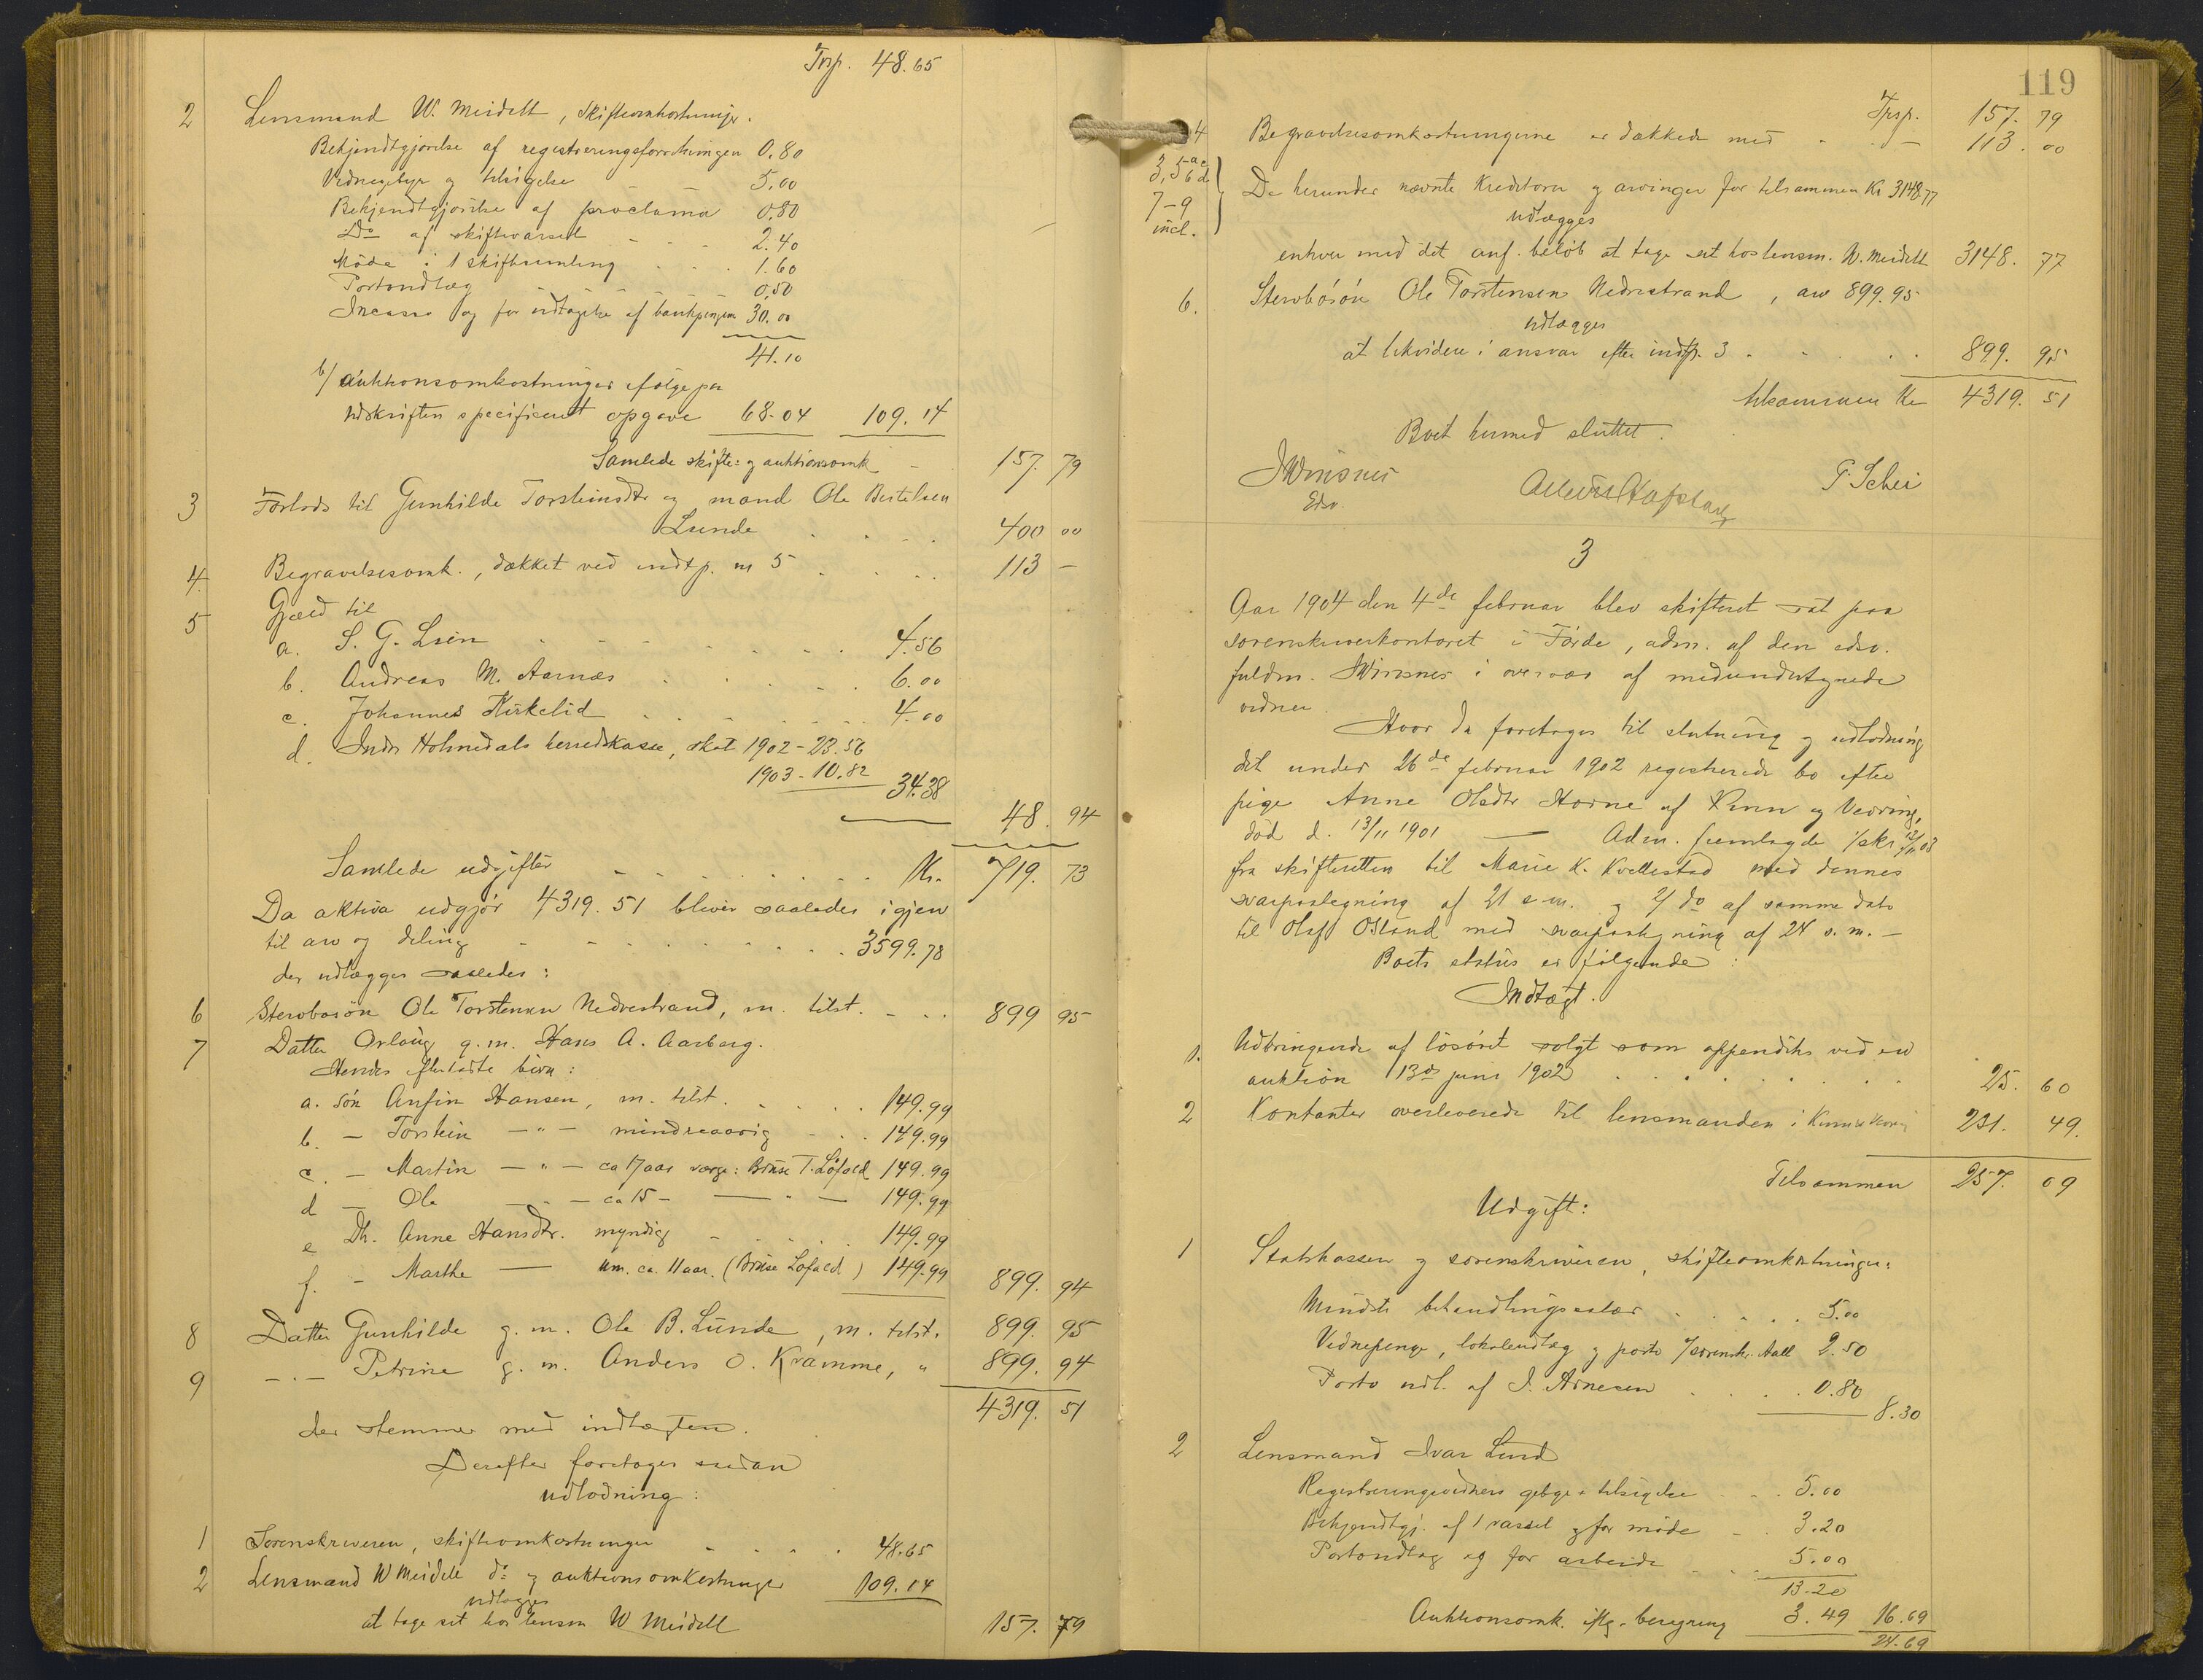 Trsp. 48.65
2 Lensmand W. Meidell, skifteomkostninger.
Bekjendtgjørelse af registreringsforretningen 0.80
Vidnegebyr og tilsigelse 5.00
Bekjendtgjørelse af proclama 0.80
Do af skiftevarsel 2.40
Møde i 1 skiftesamling 1.60
Portoudlæg 0.50
Incasso og for udtagelse af bankpengene 30.00
41.10
b/ auktionsomkostninger ifølge paa
udskriften specificeret opgave 68.04 109.14
Samlede skifte- og auktionsomk. 157. 79
3 Forlods til Gunhilde Torsteinsdtr og mand Ole Bertelsen
Lunde 400 00
4. Begravelsesomk., dækket ved indtp. m 5 113 –
5 Gjæld til
a. S. G. Lien 4.56
b. Andreas M. Aarnæs 6.00
c. Johannes Kirkelid 4.00
d. Indre Holmedals herredskasse, skat 1902 – 23.56
1903 – 10.82 34.38
48. 94
Samlede udgifter Kr. 719. 73
Da aktiva udgjør 4319.51 bliver saaledes igjen
til arv og deling 3599.78
der udlægges saaledes:
6 Stervbosøn Ole Torstensen Nedrestrand, m. tilst. 899 95
7 Datter Orlaug g.m. Hans A. Aarberg.
Hendes efterladte børn:
a. søn Anfin Hansen, m. tilst. 149.99
b. – Torstein – " – mindreaarig 149.99
c. – Martin – " – ca 17 aar værge: Bræse T. Løfald 149.99
d – Ole – " – ca 15 – – " – 149.99
e Dtr. Anne Hansdtr. myndig 149.99
f. – Marthe – um. ca. 11 aar. (Bræse Løfald) 149.99 899. 94
8 Datter Gunhilde g.m. Ole B. Lunde, m. tilst. 899. 95
9 – " – Petrine g.m. Anders O. Kramme, " 899. 94
4319. 51
der stemmer med indtægten.
Derefter foretoges saadan
udlodning:
1 Sorenskriveren, skifteomkostninger 48.65
2 Lensmand W Meidell do og auktionsomkostninger 109.14
udlægges
at tage sit hos lensm W Meidell 157. 79
119
Trsp. 157. 79
4 Begravelsesomkostningerne er dækkede med 113. 00
3, 5 a c b d
7–9
incl.
De herunder nævnte kreditorer og arvinger for tilsammen Kr 3148.77
udlægges
enhver med det anf. beløb at tage sit hos lensm. W. Meidell 3148. 77
6. Stervbosøn Ole Torstensen Nedrestrand, arv 899.95
udlægges
at likvidere i ansvar efter indtp. 3 899. 95
tilsammen Kr 4319. 51
Boet hermed sluttet.
JWrisnes
Edsv.
P. Schei
3
Aar 1904 den 4de februar blev skifteret sat paa
sorenskriverkontoret i Førde, adm. af den edsv.
fuldm. Wrisnes i overvær af medundertegnede
vidner.
Hvor da foretoges til slutning og udlodning
det under 26de februar 1902 registrerede bo efter
pige Anne Olsdtr Horne af Kinn og Vevring,
død d. 13/11 1901 – Adm. fremlagde 1/ skr 12/11 03
fra skifteretten til Marie K. Kvellestad med dennes
svarpaategning af 21 s.m. og 2/ do af samme dato
til Olaf Osland med svarpaategning af 24 s.m. –
Boets status er følgende:
Indtægt.
1. Udbringende af løsøret solgt som appendiks ved en
auktion 13de juni 1902 25. 60
2 Kontanter overleverede til lensmanden i Kinn & Vevring 231. 49.
Tilsammen 257. 09
Udgift:
1 Statskassen og sorenskriveren, skifteomkostninger:
Mindste behandlingssalær 5.00
Vidnepenge, lokaleudlæg og porto v/ sorenskr. Aall 2.50
Porto udl. af J. Arnesen 0.80
8.30
2 Lensmand Ivar Lund
Registreringsvidners gebyr & tilsigelse 5.00
Bekjendtgj. af 1 varsel og for møde 3.20
Portoudlæg og for arbeide 5.00
13.20
Auktionsomk. iflg. beregning 3.49 16.69
24.69